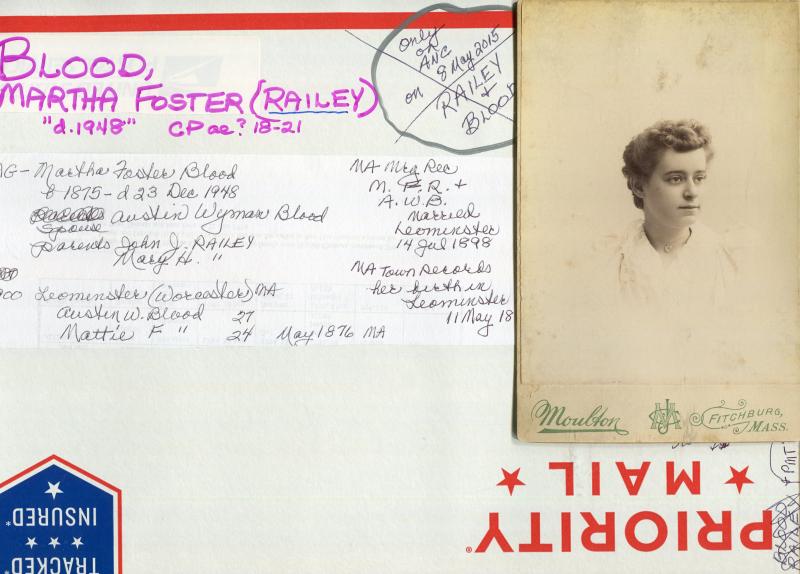 BLOOD,
MARTHA FOSTER (RAILEY)
"d.1948" CP ae? 18-21
only
on
ANC
on 8 May 2015
RAILEY
+
BLOOD
AG - Martha Foster Blood
b 1875 - d 23 Dec 1948
Spouse Austin Wyman Blood
parents John J. RAILEY
Mary H. "
MA Mrg Rec
M. F. R. +
A. W. B.
married
Leominster
14 Jul 1898
MA Town Records
her birth in
Leominster
11 May 18
900 Leominster (Worcester) MA
Austin W. Blood 27
Mattie F " 24 May 1876 MA
Moulton
FITCHBURG,
MASS.
PRIORITY
MAIL
TRACKED
INSURED
BLOOD
RAILEY
+ PMT